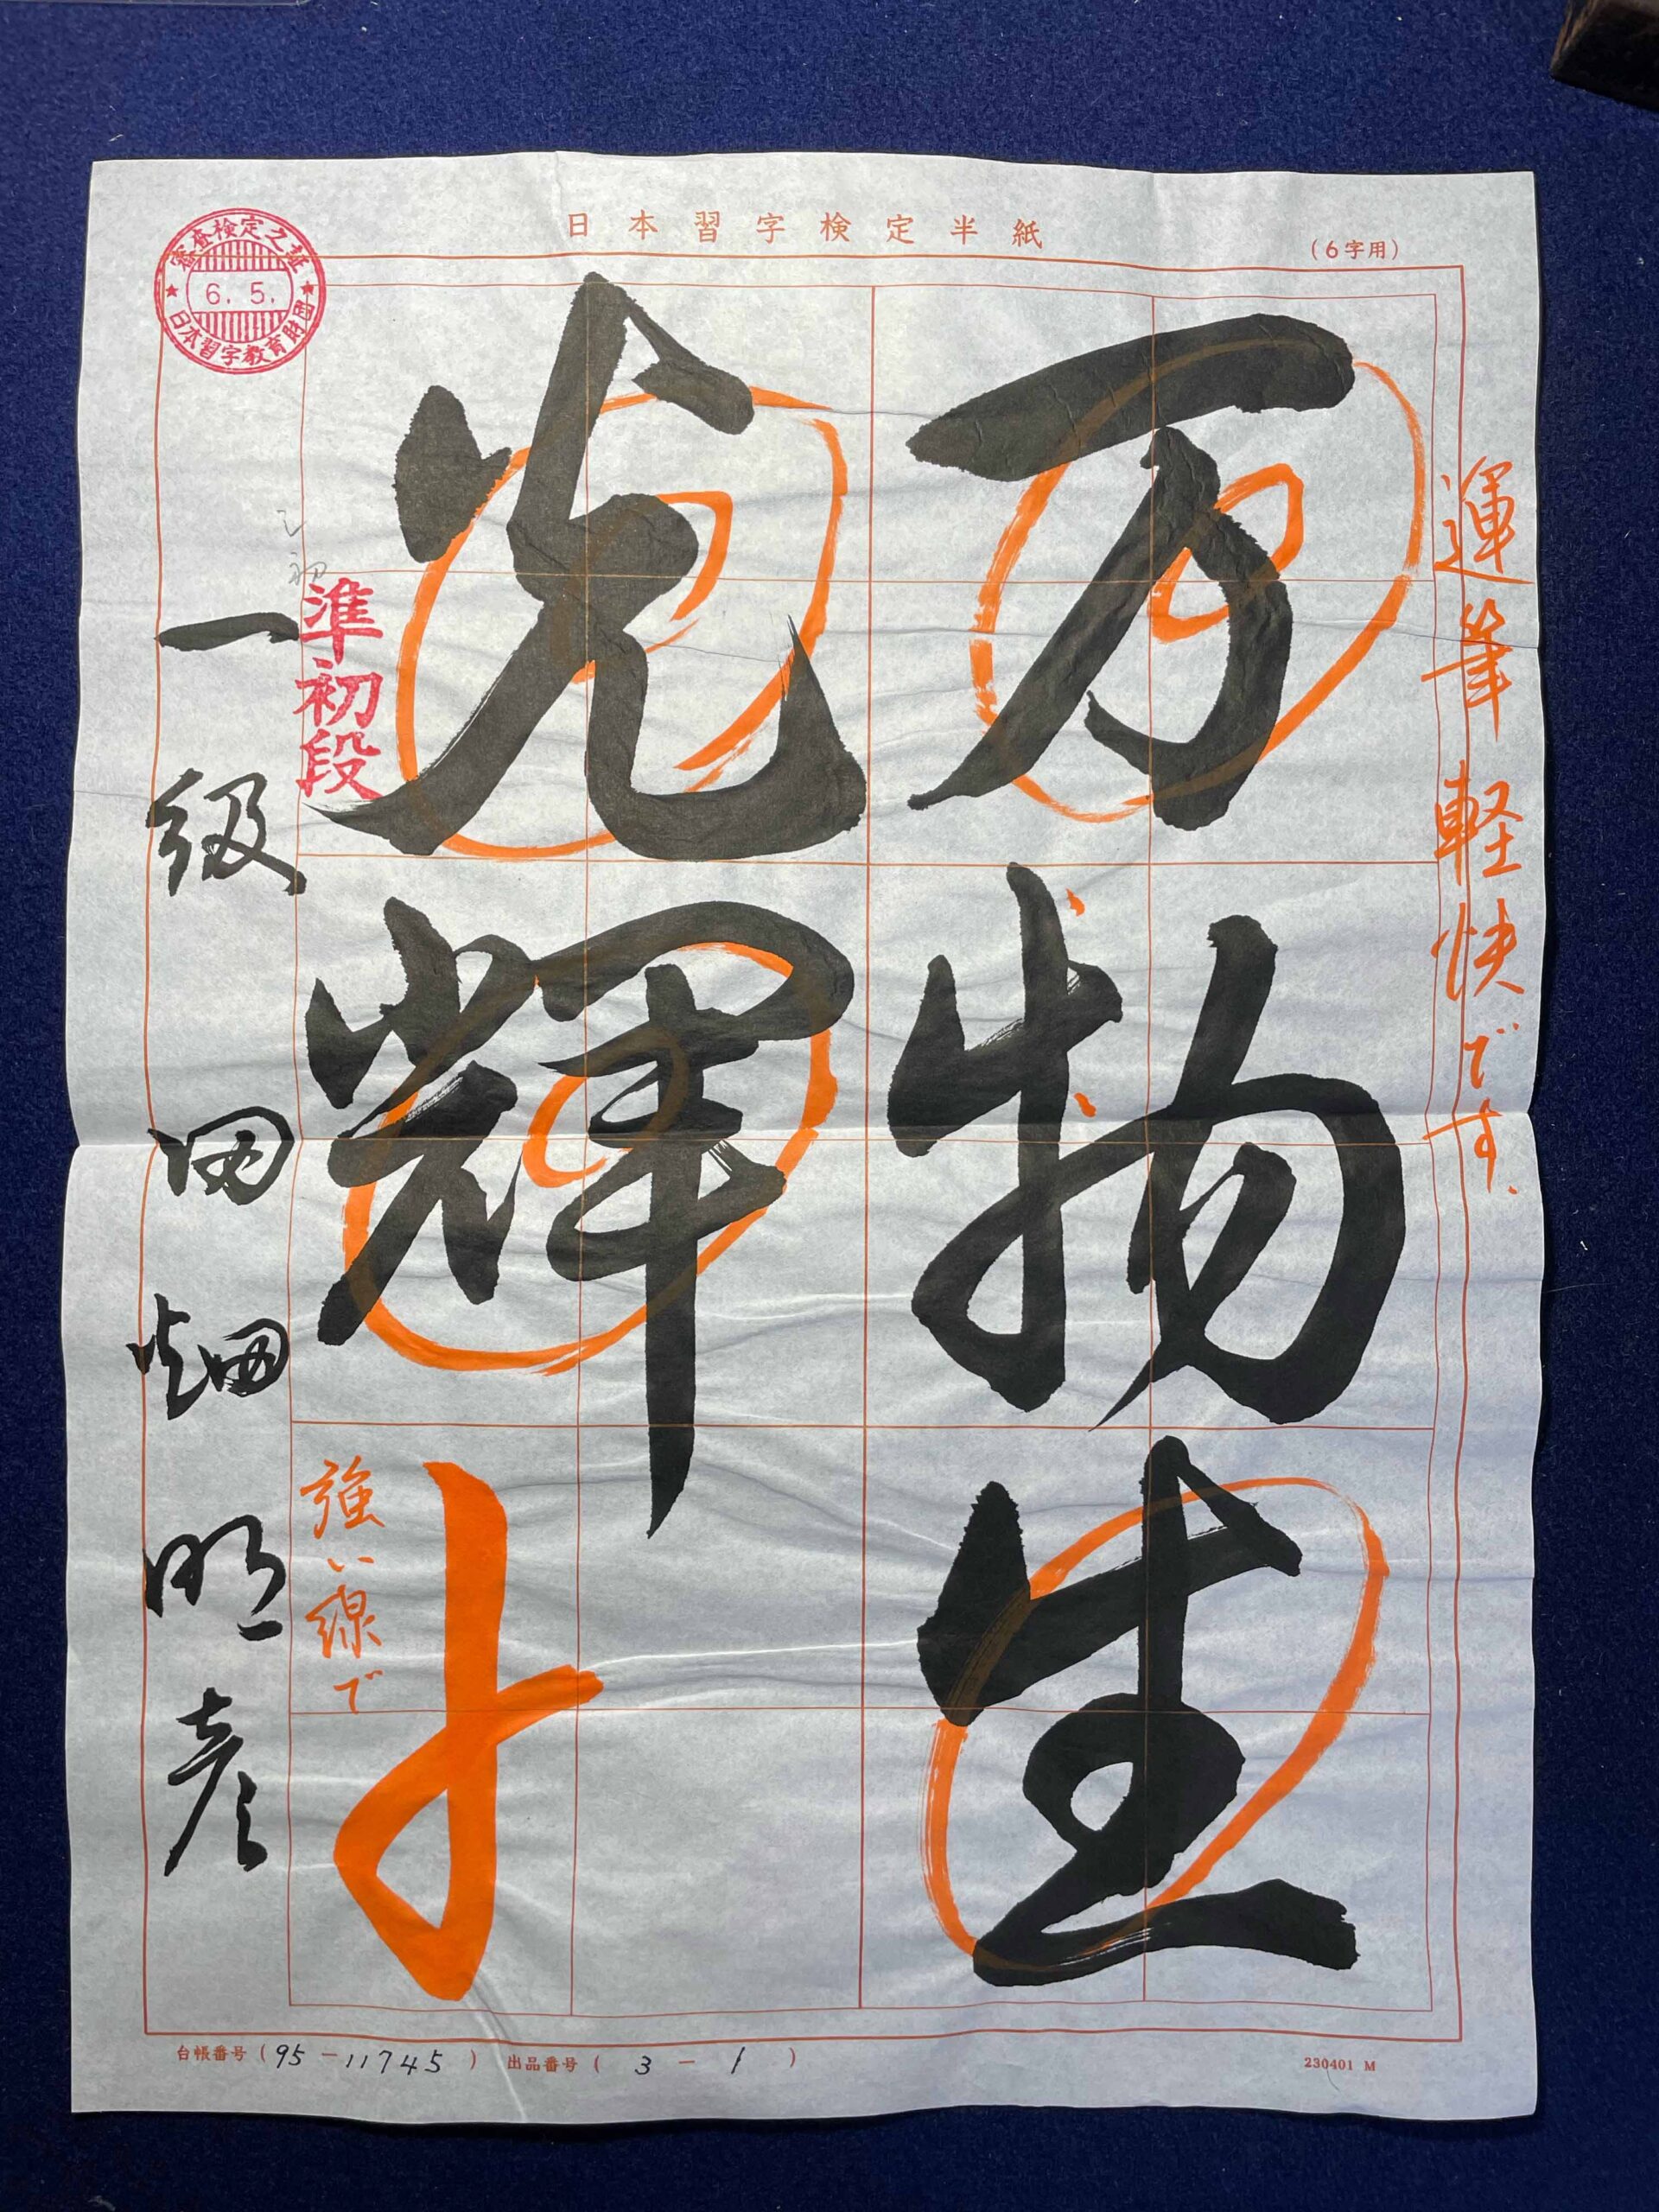 日本習字検定半紙
(6字用)
審査検定之証
6.5.
日本習字教育財団
運筆軽快です.
万物生
光輝
準初段
強い線で
一級 田畑明彦
台帳番号(95-11745) 出品番号(3-1)
230401 M